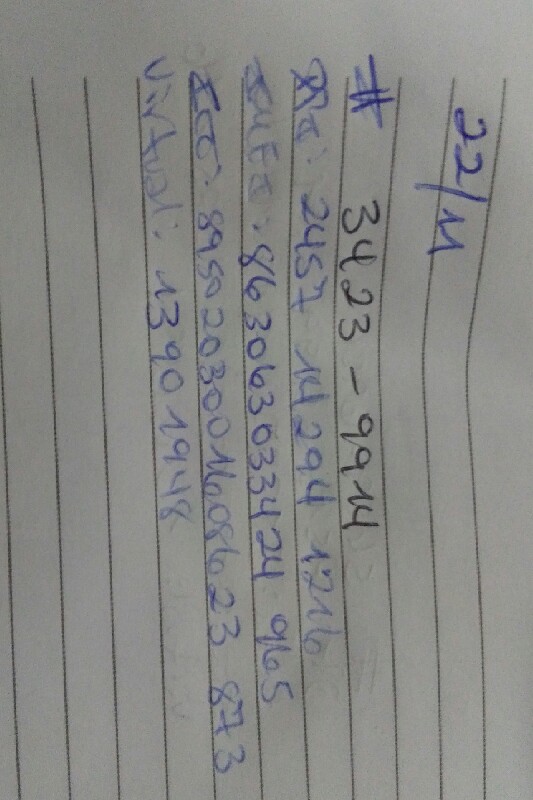 22/11
# 3423-9914
DPI: 2457 14294 1216
IMEI: 863063033424 965
ICC: 8950203001608623 873
Virtual: 13901948